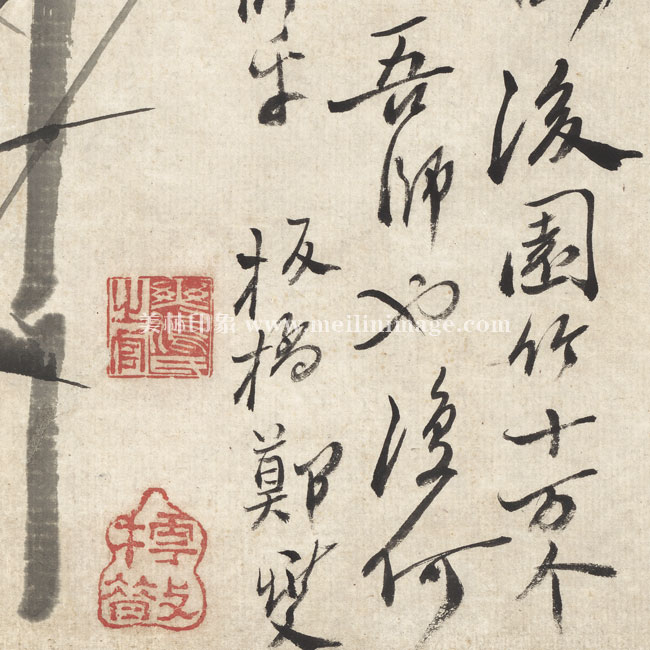 後園竹十万个
吾師也復何
乎
板橋鄭燮
爽鳩氏之官
美林印象 www.meilinimage.com